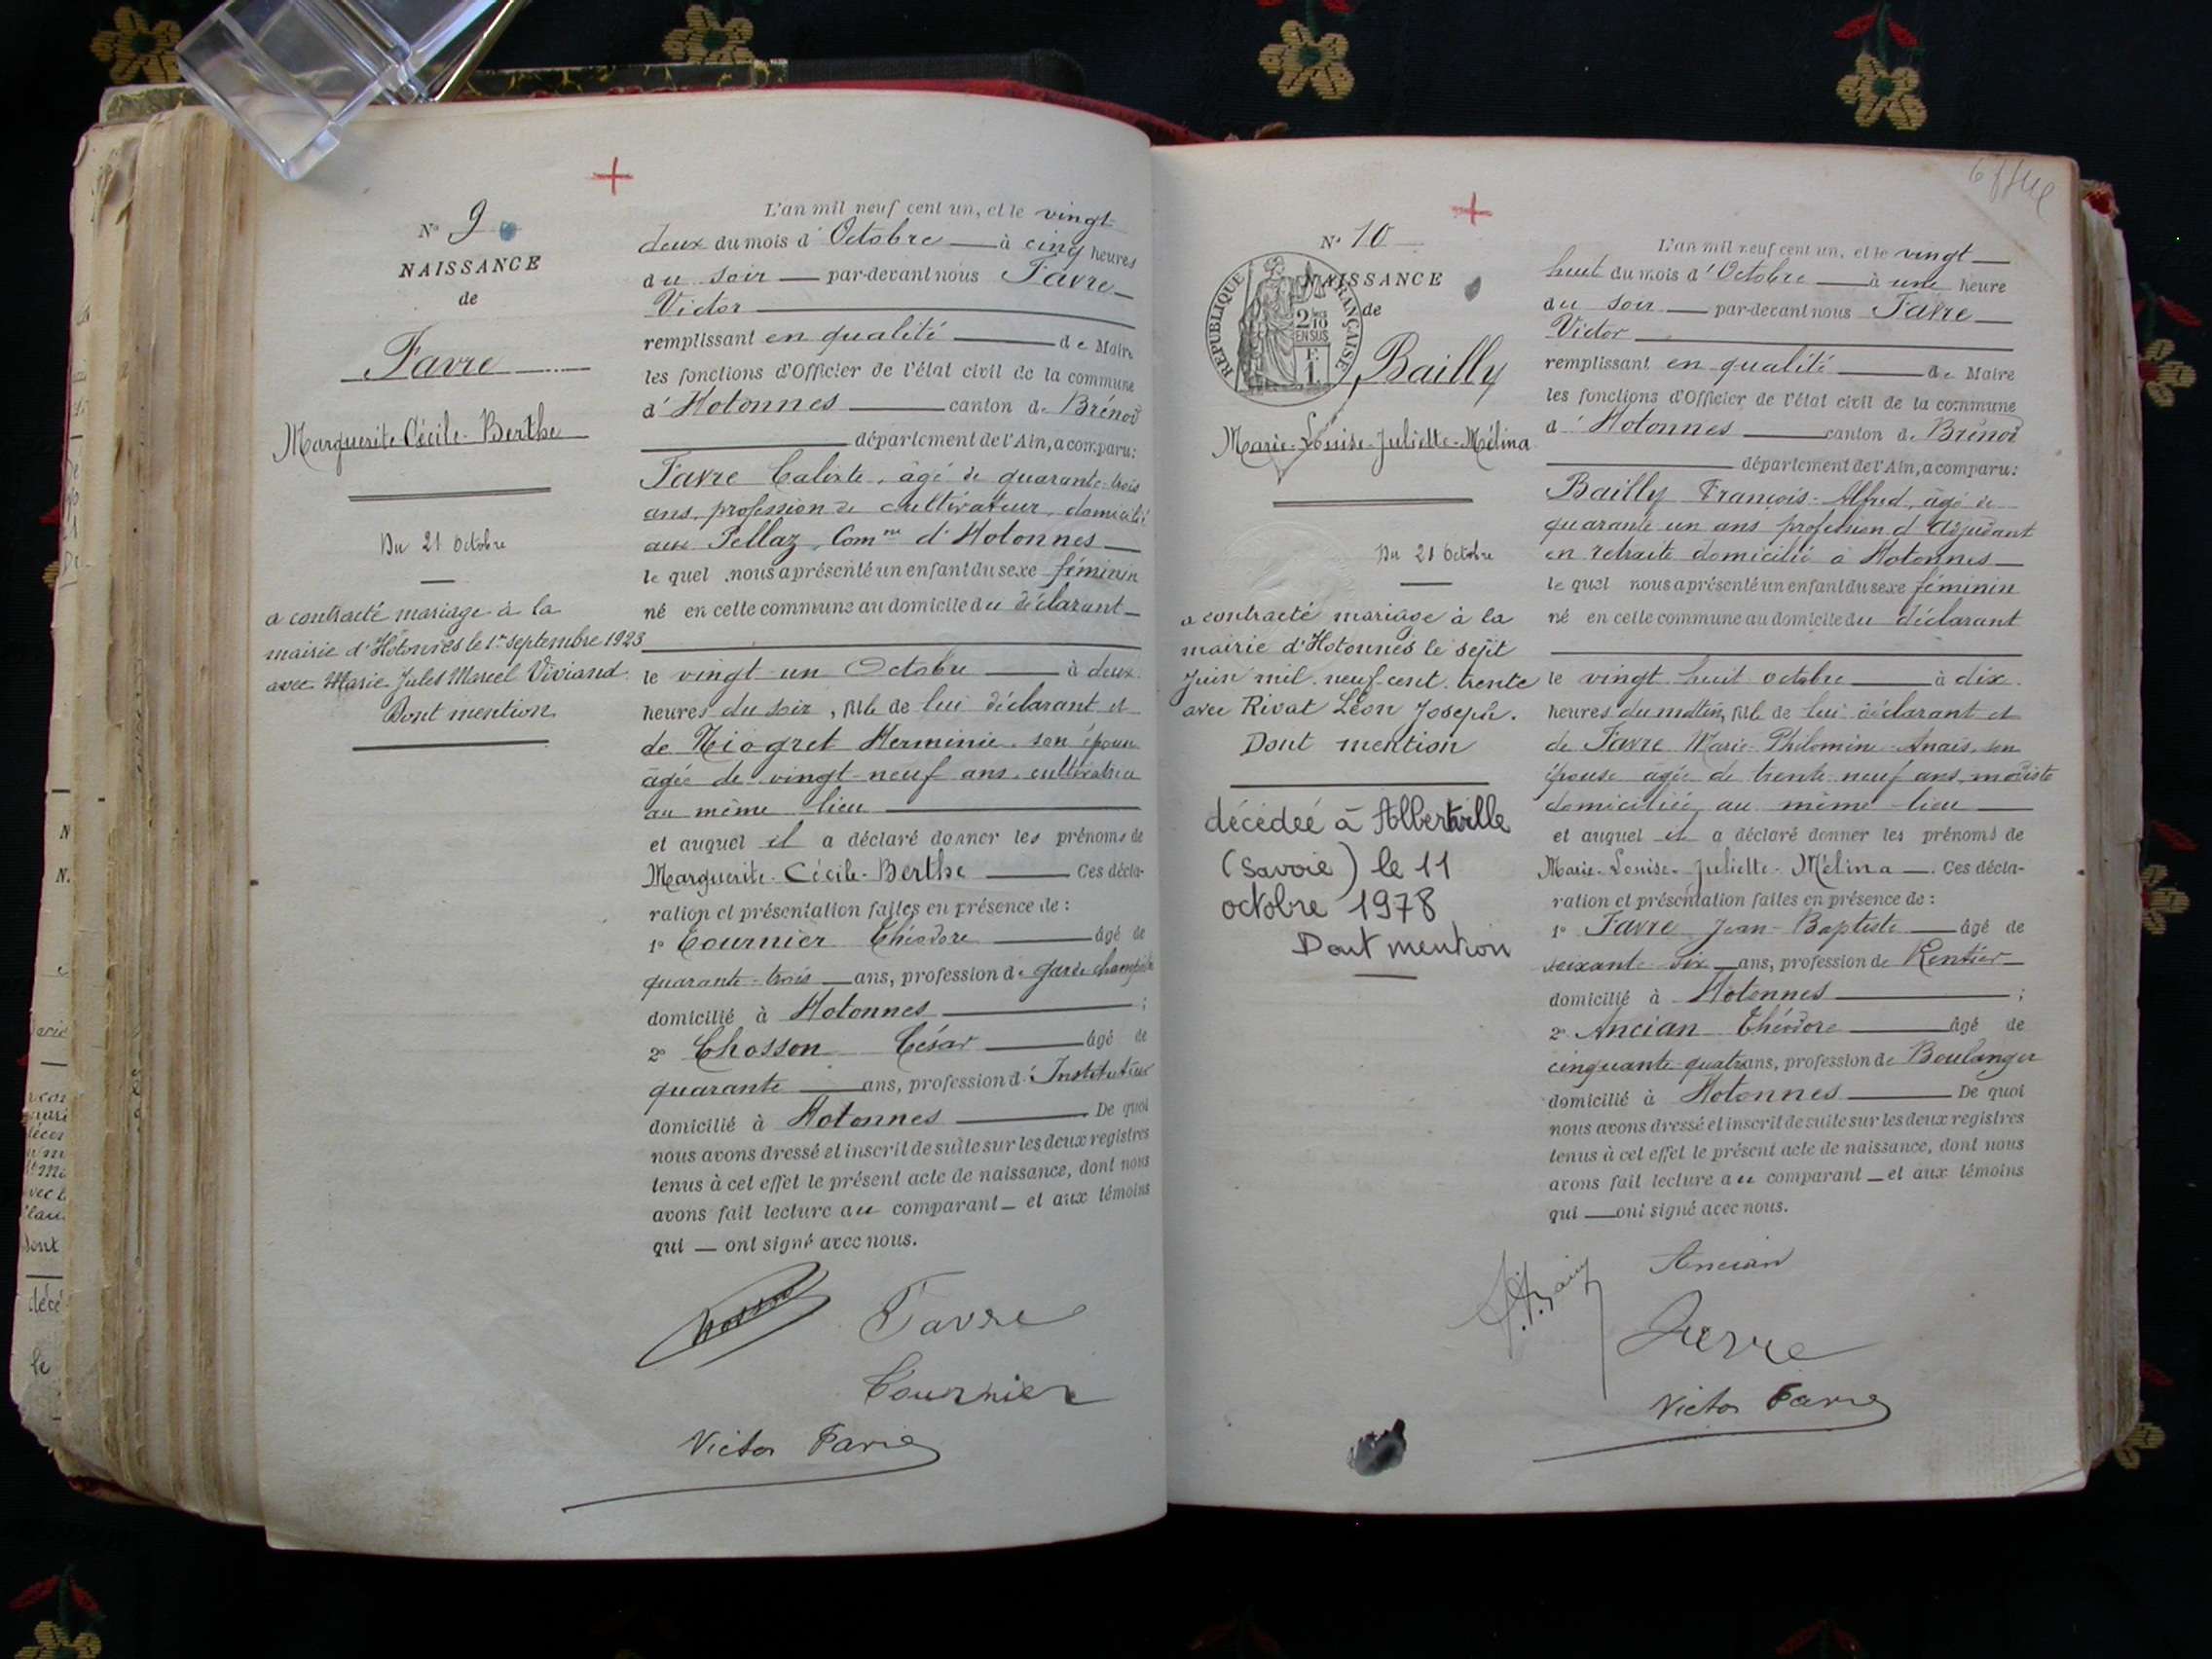 N° 9
NAISSANCE
de
Favre
Marguerite Cécile-Berthe
Du 21 Octobre
a contracté mariage à la
mairie d'Hotonnes le 1er septembre 1923
avec Marie Jules Marcel Viviand
Dont mention
L'an mil neuf cent un, et le vingt-
deux du mois d'Octobre à cinq heures
du soir par-devant nous Favre
Victor
remplissant en qualité de Maire
les fonctions d'Officier de l'état civil de la commune
d'Hotonnes canton de Brénod
département de l'Ain, a comparu:
Favre Calixte, âgé de quarante-trois
ans, profession de cultivateur, domicilié
aux Pellaz, Comne d'Hotonnes
le quel nous a présenté un enfant du sexe féminin
né en cette commune au domicile du déclarant
le vingt-un Octobre à deux
heures du soir, fille de lui déclarant et
de Niogret Herminie, son épouse
âgée de vingt-neuf ans, cultivatrice
au même lieu
et auquel il a déclaré donner les prénoms de
Marguerite-Cécile-Berthe Ces décla-
ration et présentation faites en présence de :
1° Tournier Théodore âgé de
quarante-trois ans, profession de garde champêtre
domicilié à Hotonnes ;
2° Chosson César âgé de
quarante ans, profession d'Instituteur
domicilié à Hotonnes De quoi
nous avons dressé et inscrit de suite sur les deux registres
tenus à cet effet le présent acte de naissance, dont nous
avons fait lecture au comparant et aux témoins
qui ont signé avec nous.
Chosson Favre
Tournier
Victor Favre
N° 10
NAISSANCE
de
REPUBLIQUE FRANÇAISE
2/10 EN SUS
F. 1
Bailly
Marie-Louise-Juliette-Mélina
Du 28 Octobre
a contracté mariage à la
mairie d'Hotonnes le sept
Juin mil neuf cent trente
avec Rivat Léon Joseph.
Dont mention
décédée à Albertville
(Savoie) le 11
octobre 1978
Dont mention
L'an mil neuf cent un, et le vingt
huit du mois d'Octobre à une heure
du soir par-devant nous Favre
Victor
remplissant en qualité de Maire
les fonctions d'Officier de l'état civil de la commune
d'Hotonnes canton de Brénod
département de l'Ain, a comparu:
Bailly François-Alfred, âgé de
quarante un ans profession d'adjudant
en retraite domicilié à Hotonnes
le quel nous a présenté un enfant du sexe féminin
né en cette commune au domicile du déclarant
le vingt huit octobre à dix
heures du matin, fille de lui déclarant et
de Favre Marie-Philomine-Anaïs, son
épouse âgée de trente-neuf ans, modiste
domiciliée au même lieu
et auquel il a déclaré donner les prénoms de
Marie-Louise-Juliette-Mélina. Ces décla-
ration et présentation faites en présence de :
1° Favre Jean-Baptiste âgé de
soixante-dix ans, profession de Rentier
domicilié à Hotonnes ;
2° Ancian Théodore âgé de
cinquante-quatre ans, profession de Boulanger
domicilié à Hotonnes De quoi
nous avons dressé et inscrit de suite sur les deux registres
tenus à cet effet le présent acte de naissance, dont nous
avons fait lecture au comparant et aux témoins
qui ont signé avec nous.
Ancian
Favre
Victor Favre